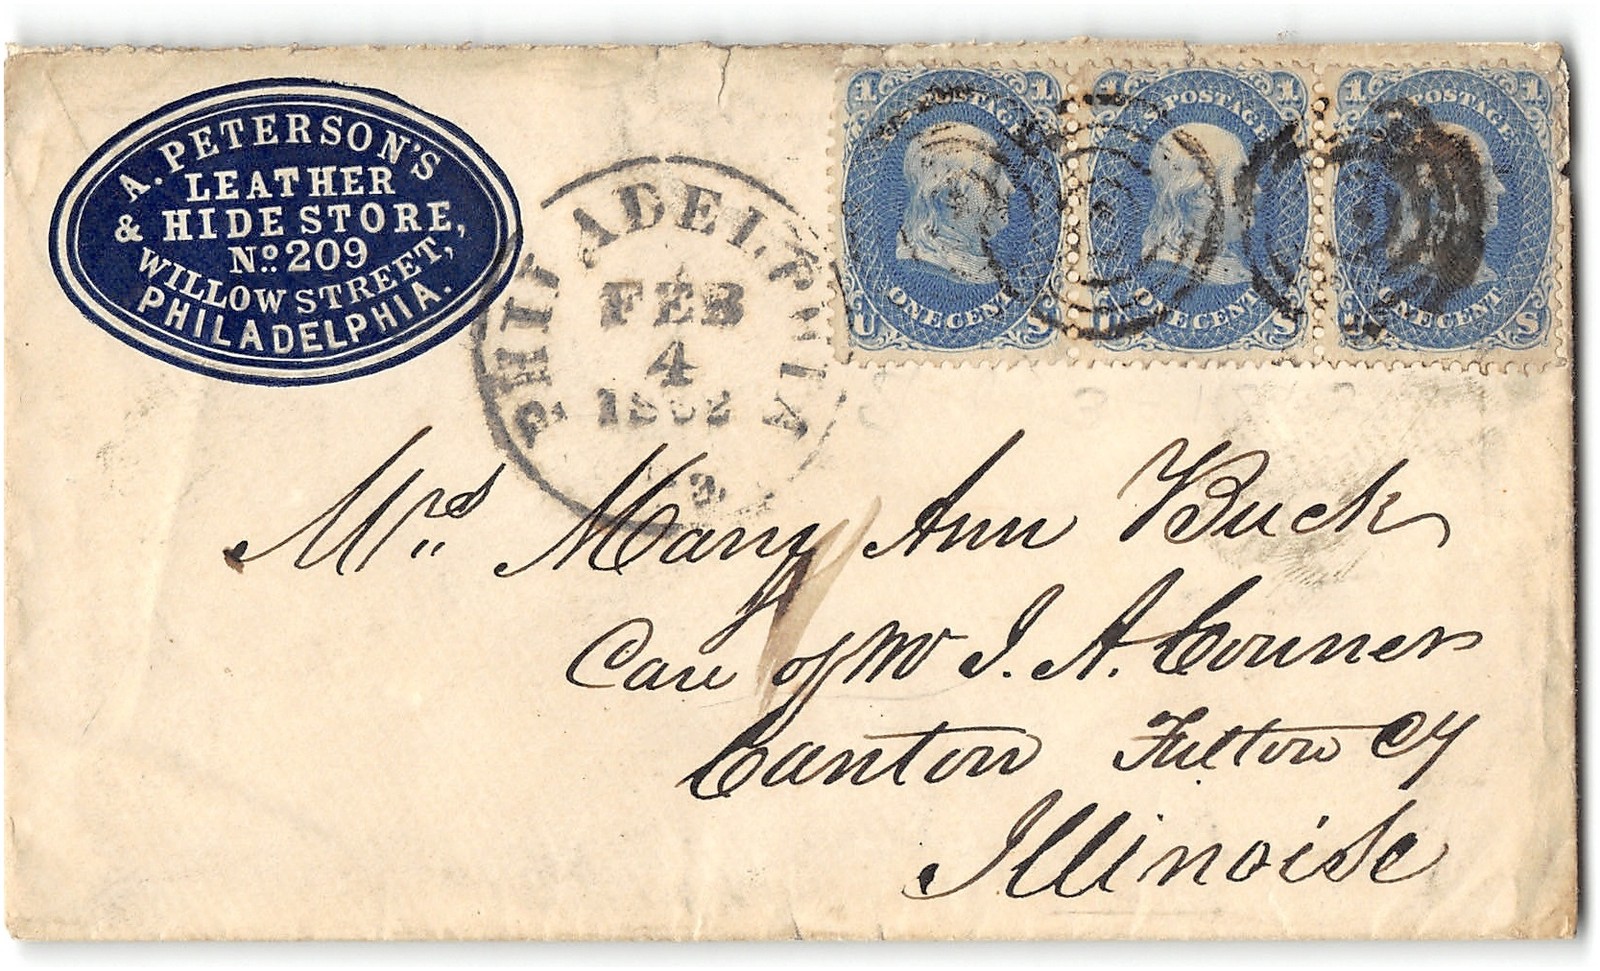 A. PETERSON'S
LEATHER
& HIDE STORE,
No. 209
WILLOW STREET,
PHILADELPHIA.
PHILADELPHIA
FEB
4
1862
Pa.
1 POSTAGE 1
ONE CENT
U S
1 POSTAGE 1
ONE CENT
U S
1 POSTAGE 1
ONE CENT
U S
Mrs Mary Ann Buck
Care of Mr J. A. Conner
Canton Fulton Cy
Illinoise